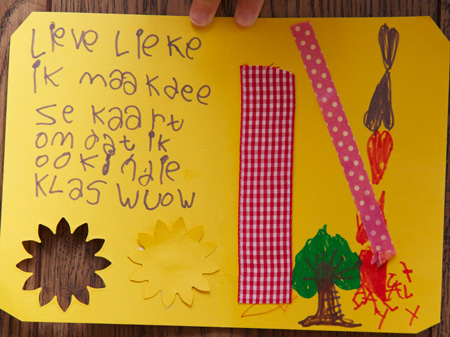 LIEVE LIEKE
iK maaKdee
se Kaart
omdat ik
ooKiNalie
KLAS WUOW